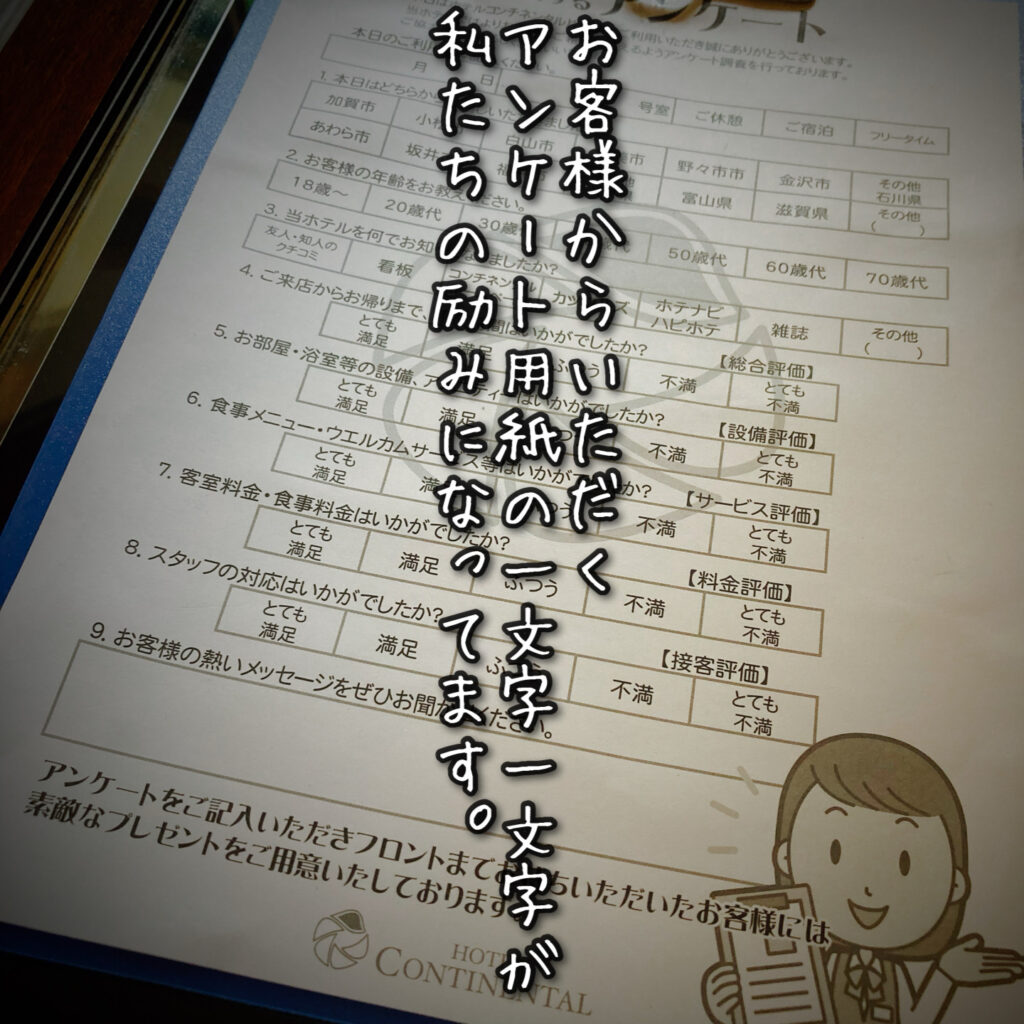 お客様からいただく
アンケート用紙の一文字一文字が
私たちの励みになってます。
アンケート
利用いただき誠にありがとうございます。
るようアンケート調査を行っております。
本日のご利用
ください。
月 日 号室 ご休憩 ご宿泊 フリータイム
1. 本日はどちらか
加賀市 小 白山市 野々市市 金沢市 その他石川県
あわら市 坂井 富山県 滋賀県 その他( )
2. お客様の年齢をお教えください。
18歳～ 20歳代 30歳 50歳代 60歳代 70歳代
3. 当ホテルを何でお知 ましたか?
友人・知人のクチコミ 看板 コンチネンタル カップ ズ ホテナビ ハピホテ 雑誌 その他( )
4. ご来店からお帰りまで、 間はいかがでしたか? 【総合評価】
とても満足 満足 ふつう 不満 とても不満
5. お部屋・浴室等の設備、ア ティーはいかがでしたか? 【設備評価】
とても満足 満足 つう 不満 とても不満
6. 食事メニュー・ウエルカムサービス等はいかがでしたか? 【サービス評価】
とても満足 満 つう 不満 とても不満
7. 客室料金・食事料金はいかがでしたか? 【料金評価】
とても満足 満足 ふつう 不満 とても不満
8. スタッフの対応はいかがでしたか? 【接客評価】
とても満足 満足 ふ 不満 とても不満
9. お客様の熱いメッセージをぜひお聞かせください。
アンケートをご記入いただきフロントまでお持ちいただいたお客様には
素敵なプレゼントをご用意いたしております
HOTEL
CONTINENTAL